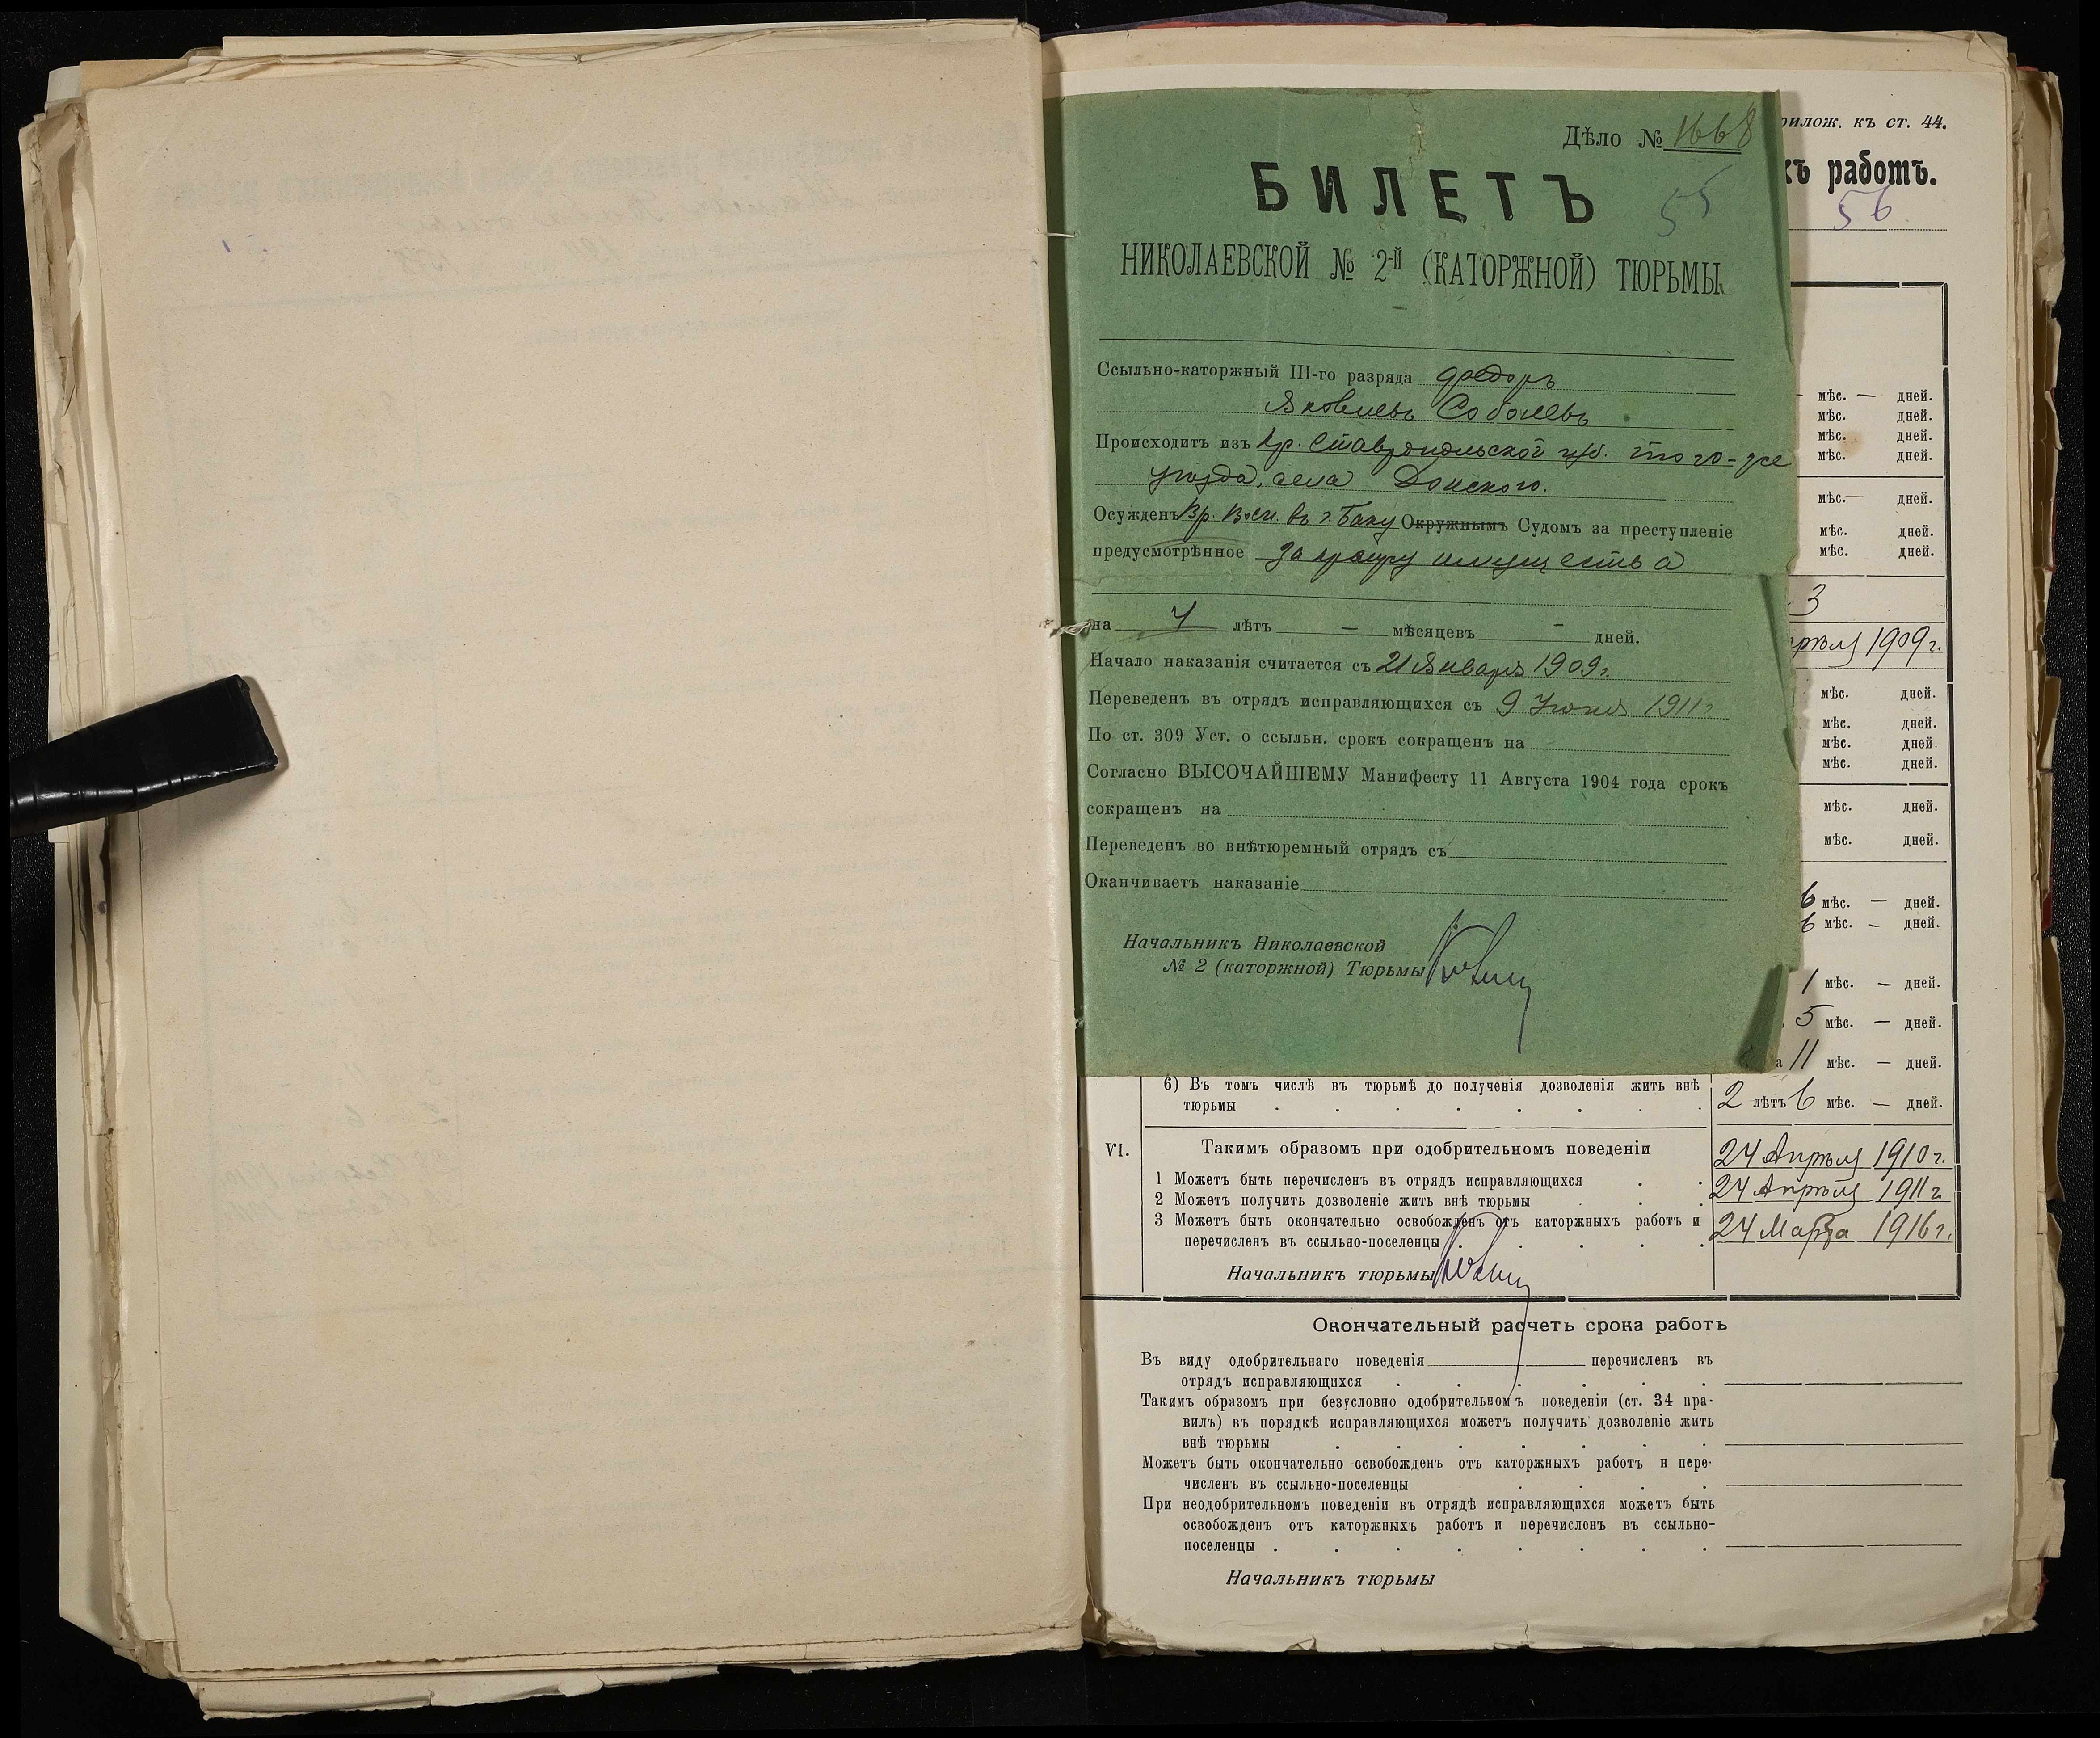 Дѣло № 1668
БИЛЕТЪ 55
НИКОЛАЕВСКОЙ № 2-й (КАТОРЖНОЙ) ТЮРЬМЫ
Ссыльно-каторжный III-го разряда Федоръ
Яковлевъ Соболевъ
Происходитъ изъ кр. Ставропольской губ. того-же
уѣзда, села Донского.
Осужденъ Вр. Воен. въ г. Баку Окружнымъ Судомъ за преступленіе
предусмотрѣнное за кражу имущества
на лѣтъ — мѣсяцевъ - дней.
Начало наказанія считается съ 21 Января 1909г.
Переведенъ въ отрядъ исправляющихся съ 9 1911г
По ст. 309 Уст. о ссыльн. срокъ сокращенъ на
Согласно ВЫСОЧАЙШЕМУ Манифесту 11 Августа 1904 года срокъ
сокращенъ на
Переведенъ во внѣтюремный отрядъ съ
Оканчиваетъ наказаніе
Начальникъ Николаевской
№ 2 (каторжной) Тюрьмы
рилож. къ ст. 44.
къ работъ.
56
мѣс. — дней.
мѣс. дней.
мѣс. дней.
мѣс. дней.
мѣс. — дней.
мѣс. дней.
мѣс. дней.
3
прѣля 1909г.
мѣс. дней.
мѣс. дней.
мѣс. дней.
мѣс. дней.
мѣс. дней.
мѣс. дней.
6 мѣс. — дней.
6 мѣс. — дней.
1 мѣс. — дней.
5 мѣс. — дней.
а 11 мѣс. — дней.
6) Въ томъ числѣ въ тюрьмѣ до полученія дозволенія жить внѣ
тюрьмы 2 лѣтъ 6 мѣс. — дней.
VI. Такимъ образомъ при одобрительномъ поведеніи
1 Можетъ быть перечисленъ въ отрядъ исправляющихся 24 Апрѣля 1910г.
2 Можетъ получить дозволеніе жить внѣ тюрьмы 24 Апрѣля 1911г
3 Можетъ быть окончательно освобожденъ отъ каторжныхъ работъ и
перечисленъ въ ссыльно-поселенцы 24 Марта 1916г.
Начальникъ тюрьмы
Окончательный расчетъ срока работъ
Въ виду одобрительнаго поведенія перечисленъ въ
отрядъ исправляющихся
Такимъ образомъ при безусловно одобрительномъ поведеніи (ст. 34 пра-
вилъ) въ порядкѣ исправляющихся можетъ получить дозволеніе жить
внѣ тюрьмы
Можетъ быть окончательно освобожденъ отъ каторжныхъ работъ и пере-
численъ въ ссыльно-поселенцы
При неодобрительномъ поведеніи въ отрядѣ исправляющихся можетъ быть
освобожденъ отъ каторжныхъ работъ и перечисленъ въ ссыльно-
поселенцы
Начальникъ тюрьмы